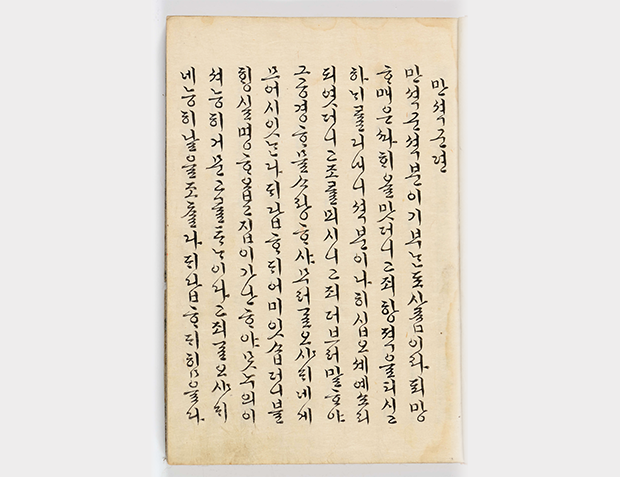 만셕군뎐
만셕군셕분이기부ᄂᆞᆫ됴사ᄅᆞᆷ이라됴망
ᄒᆞ매온ᄯᅡ희올맛더니고죄항젹을티실ᄉᆡ
하ᄂᆡ를디내시니셕분이나히십오셰예쇼리
되엿더니고조를뫼시니고죄더브러말ᄒᆞ야
그공경ᄒᆞ믈ᄉᆞ랑ᄒᆞ샤무러ᄀᆞᆯ오샤ᄃᆡ네게
므어시잇ᄂᆞᆫ다ᄃᆡ답ᄒᆞᄃᆡ어미잇ᄉᆞᆸ더니블
ᄒᆡᆼ실명ᄒᆞ옵고집이가난ᄒᆞ야ᄆᆞᆺ누의이
셔능히거문고를ᄐᆞᄂᆞ이다고죄ᄀᆞᆯ오샤ᄃᆡ
네능히날을조ᄎᆞᆯ다ᄃᆡ답ᄒᆞᄃᆡ힘을다